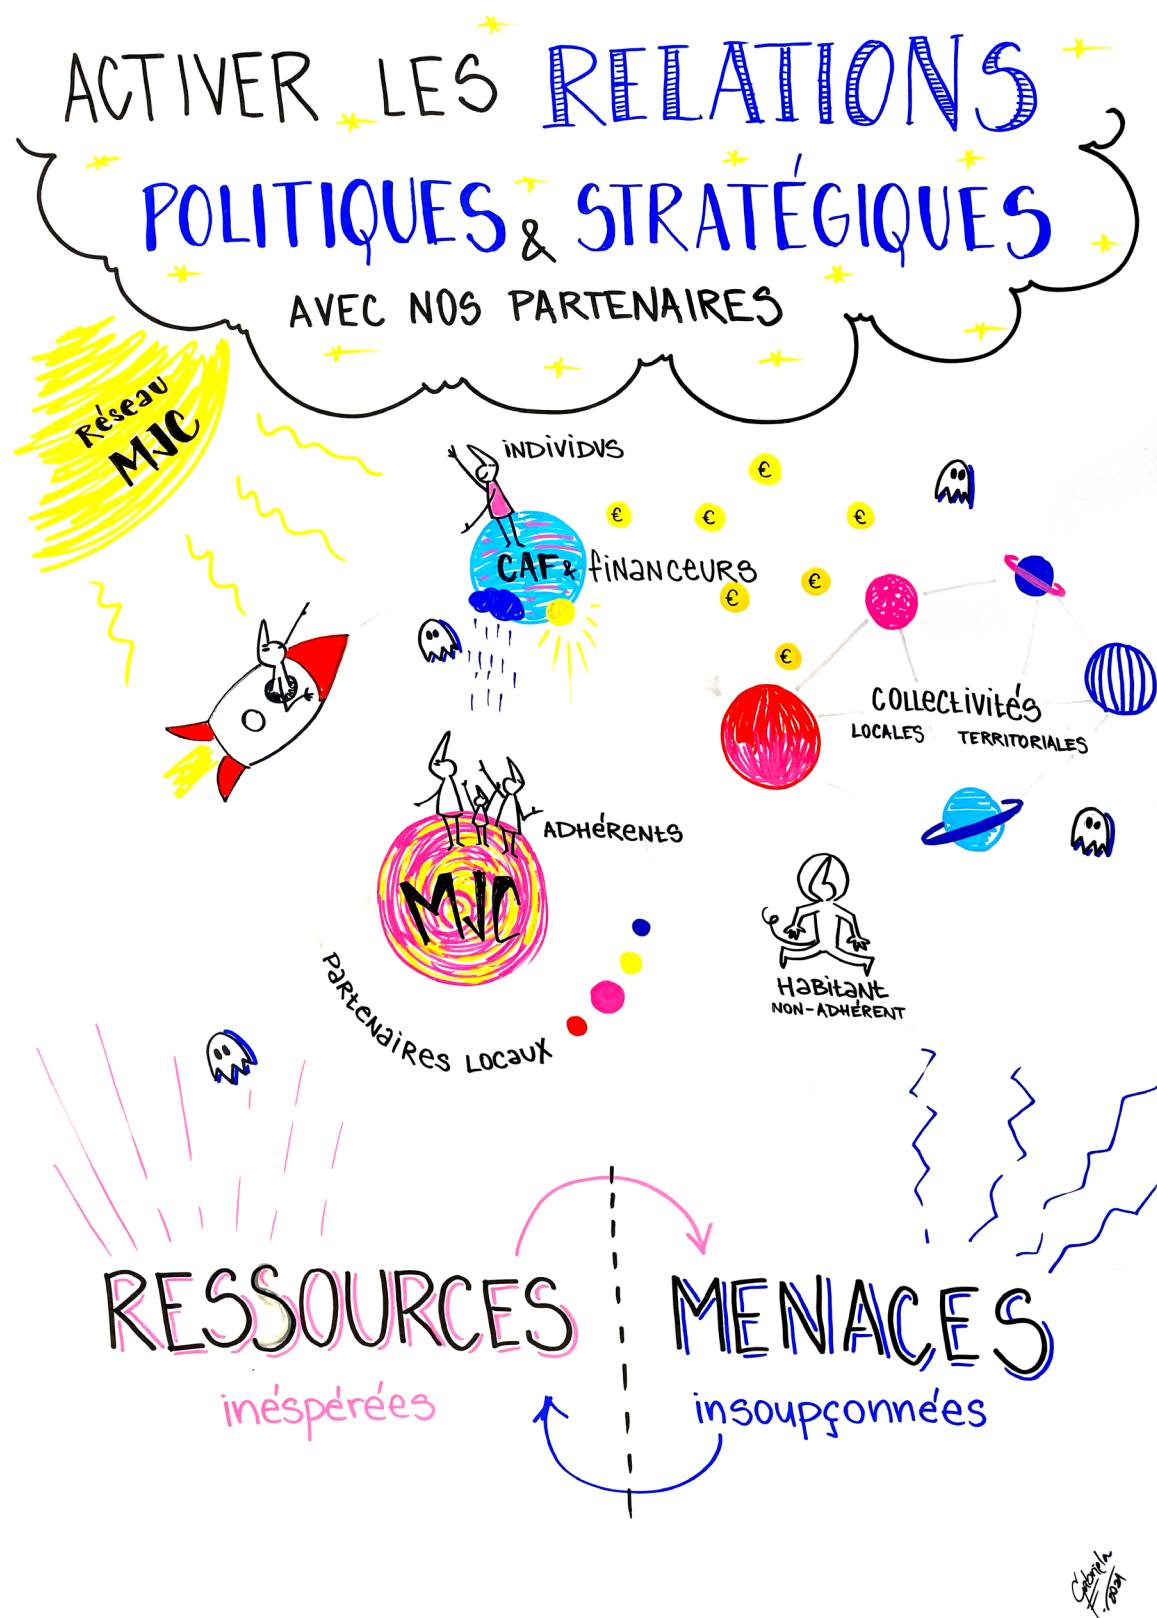 ACTIVER LES RELATIONS
POLITIQUES & STRATÉGIQUES
AVEC NOS PARTENAIRES
Réseau
MJC
INDIVIDUS
CAF & FINANCEURS
€
€
€
€
€
€
€
COLLECTIVITÉS
LOCALES TERRITORIALES
ADHÉRENTS
MJC
PARTENAIRES LOCAUX
HABITANT
NON-ADHÉRENT
RESSOURCES
inéspérées
MENACES
insoupçonnées
Gabriela
F. 2021